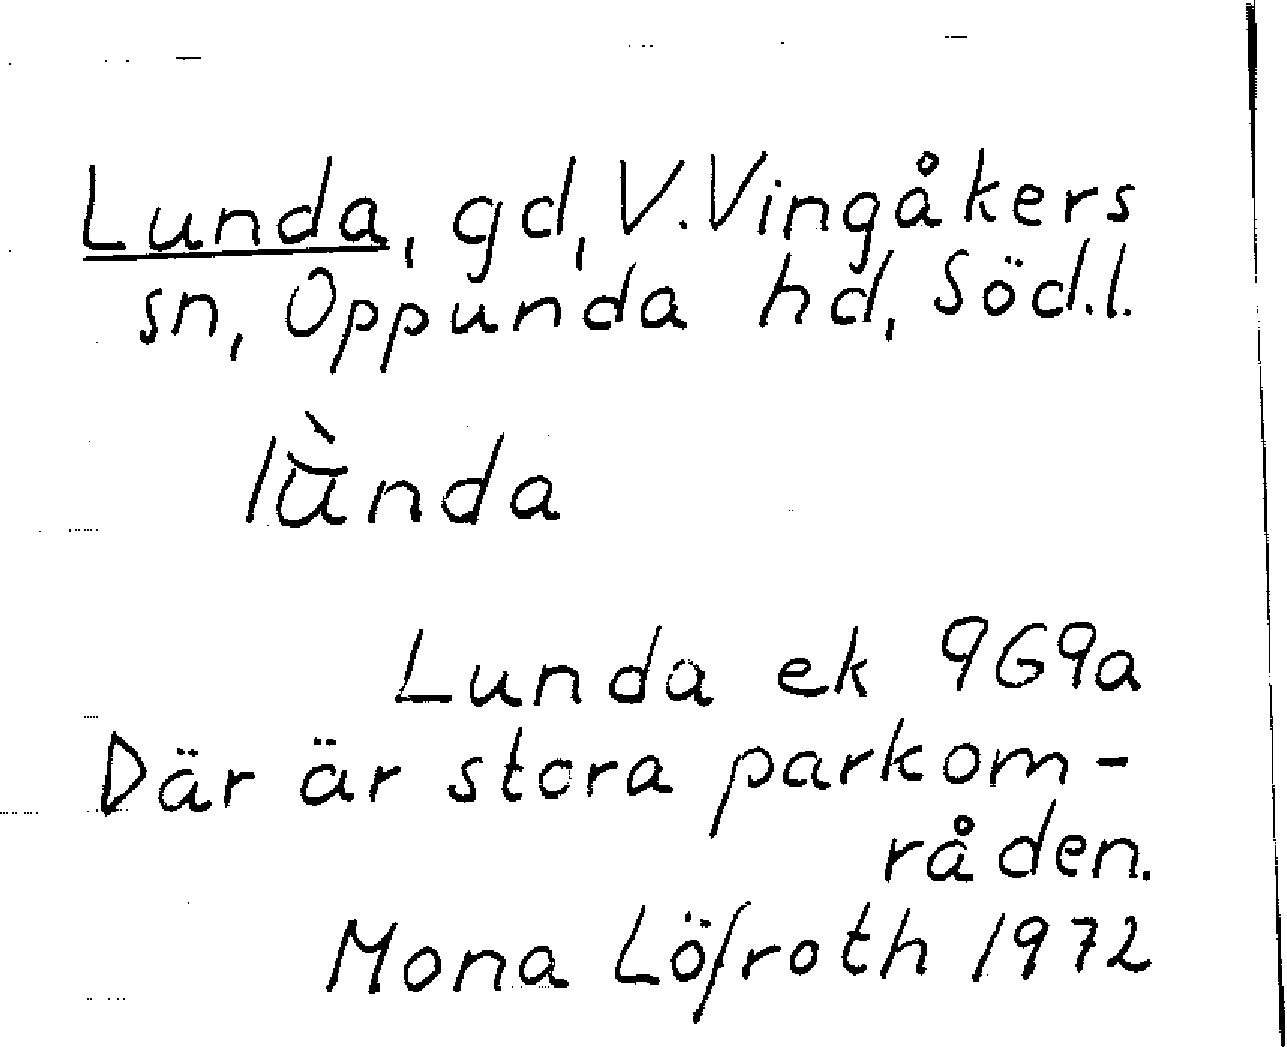 Lunda, gd, V. Vingåkers
sn, Oppunda hd, Söd.l.
lùnda
Lunda ek 9G9a
Där är stora parkom-
råden.
Mona Löfroth 1972